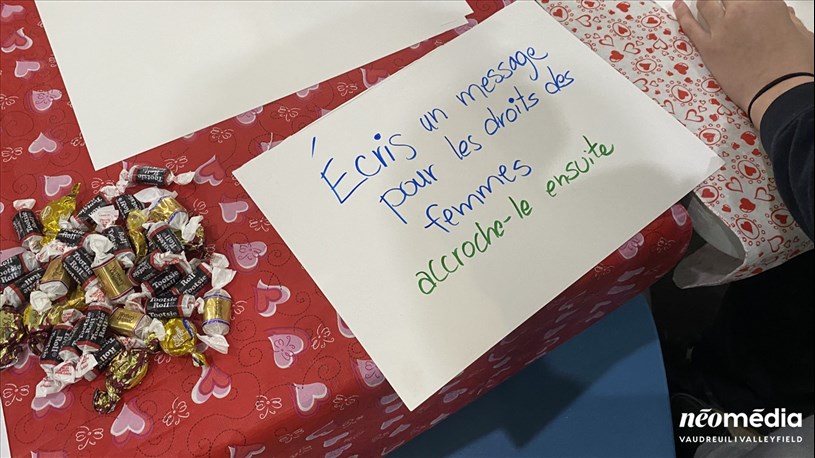 Écris un message
pour les droits des
femmes
accroche-le ensuite
Tootsie
Roll
Tootsie
néomédia
VAUDREUIL | VALLEYFIELD